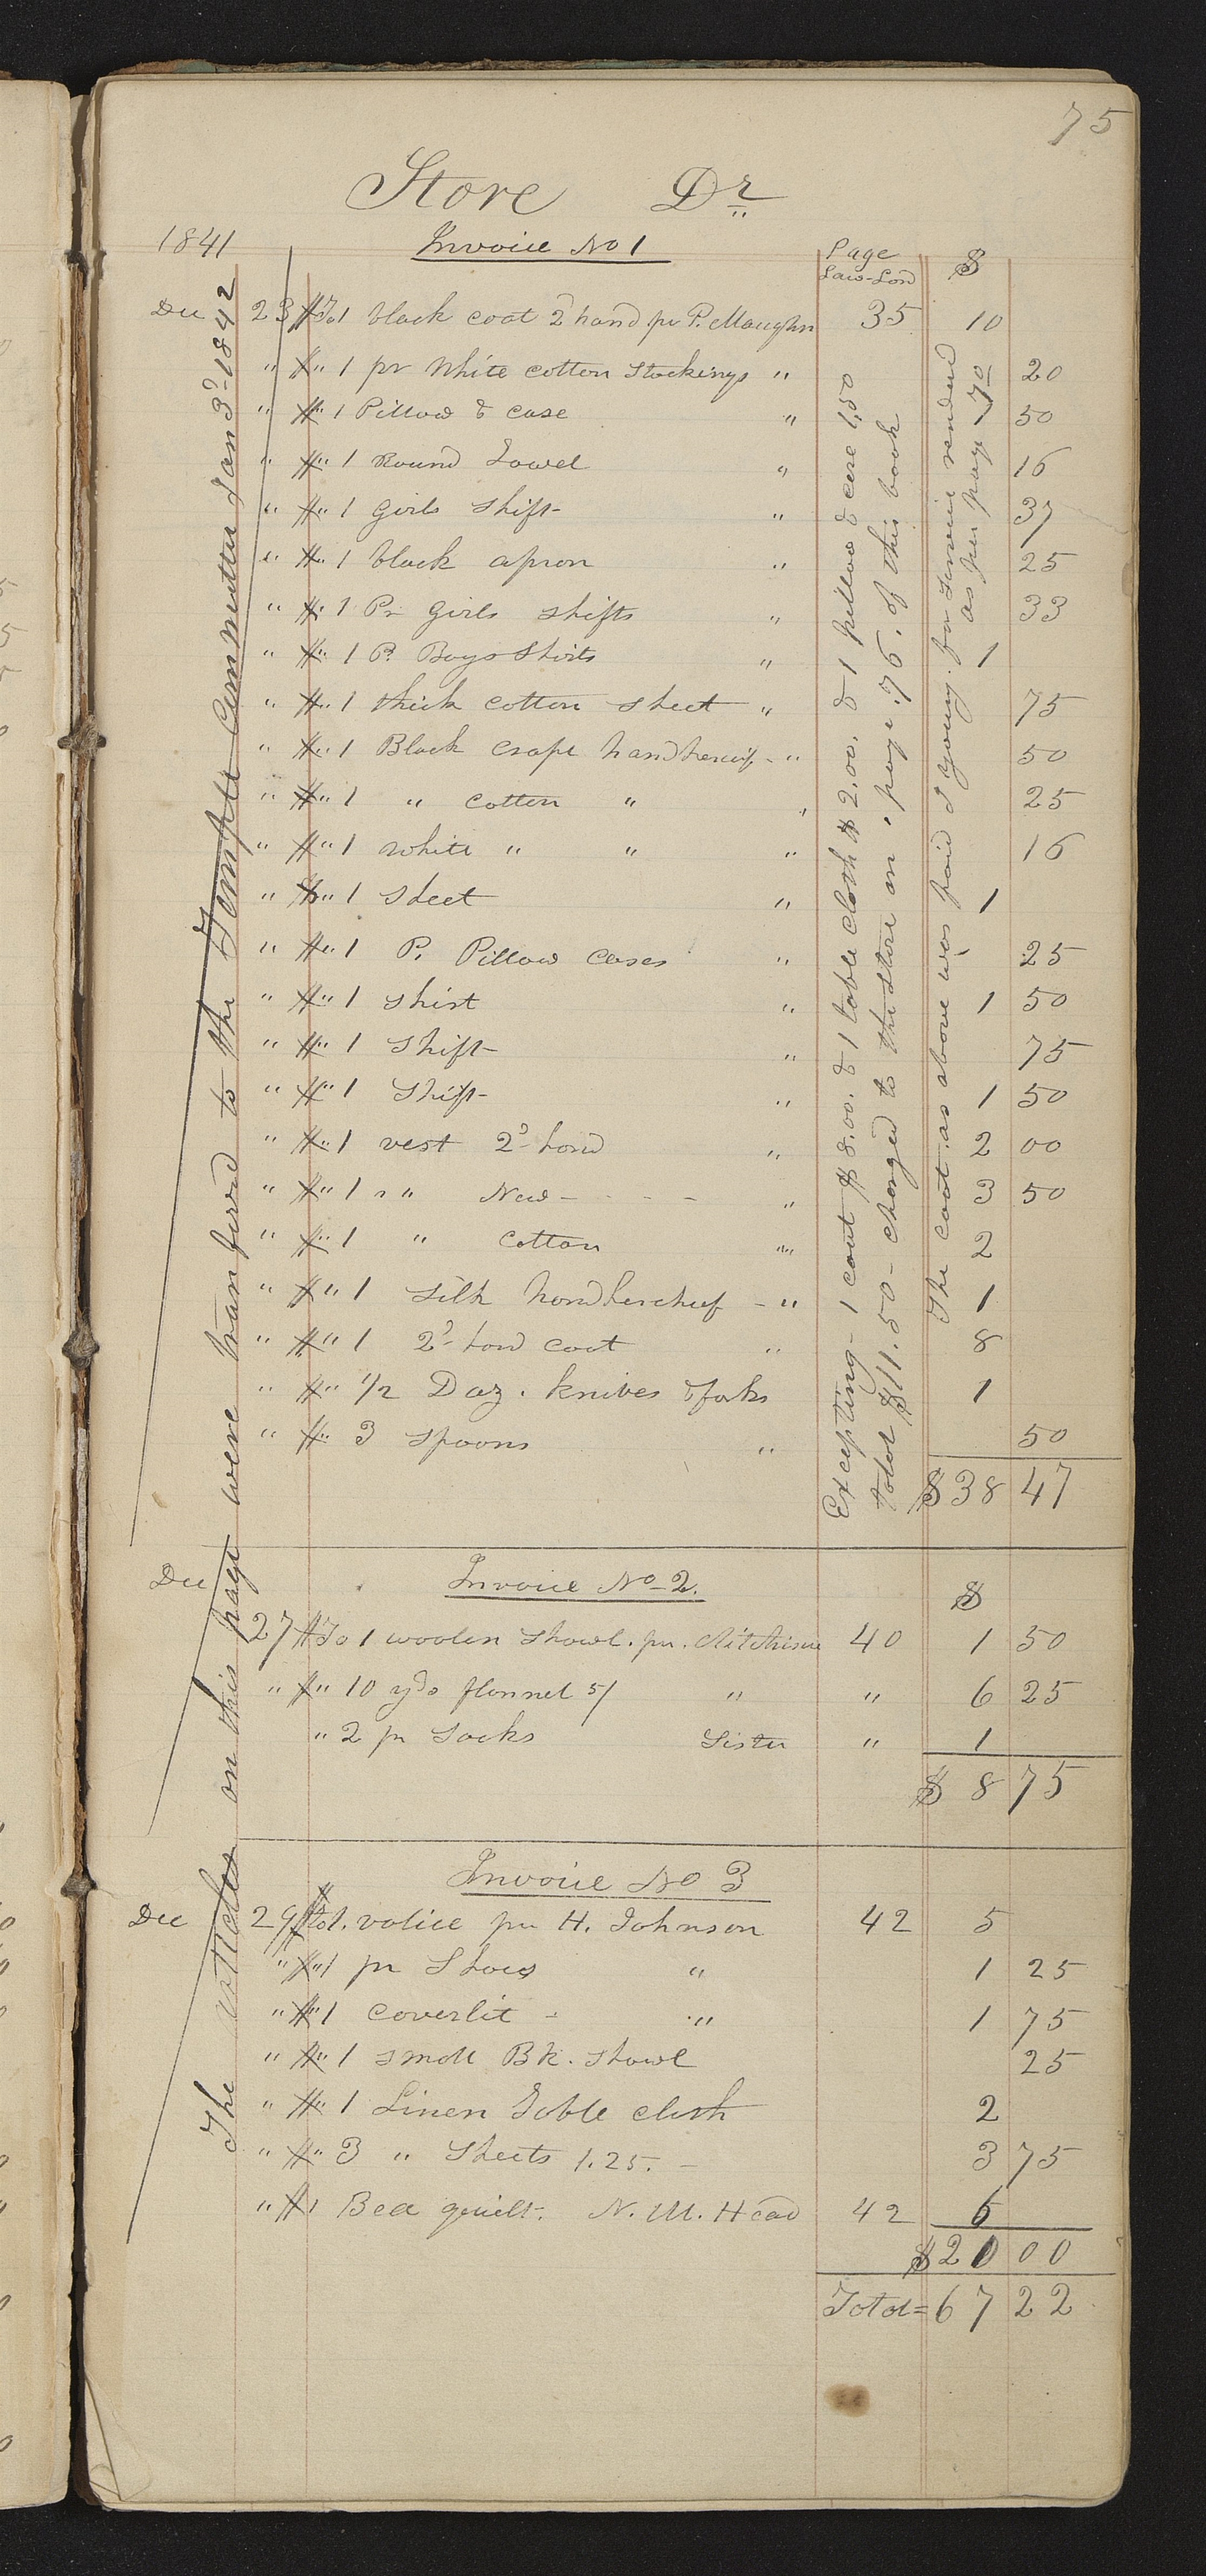 75
Store Dr
1841 Invoice No 1 Page Law-Lord $
Dec 23 To 1 black coat 2d hand pr P. Maughn 35 10
" " 1 pr white cotton stockings " 20
" " 1 Pillow & case " 1 50
" " 1 Round Towel " 16
" " 1 Girls Shift " 37
" " 1 black apron " 25
" " 1 Pr Girls shifts " 33
" " 1 P. Boys Shirts " 1
" " 1 thick cotton sheet " 75
" " 1 Black crape handkercif - " 50
" " 1 " cotton " " 25
" " 1 white " " " 16
" " 1 sheet " 1
" " 1 P. Pillow cases " 25
" " 1 shirt " 1 50
" " 1 Shift " 75
" " 1 Shift " 1 50
" " 1 vest 2d hand " 2 00
" " 1 " " New - - - - " 3 50
" " 1 " Cotton " 2
" " 1 Silk handkercheif - " 1
" " 1 2d hand coat " 8
" " 1/2 Doz. knives & forks 1
" " 3 spoons " 50
$38 47
Excepting - 1 coat $8.00. & 1 table cloth $2.00. & 1 pillow & case 1,50
total $11.50 - charged to the store on " page .76. of this book
The coat as above was paid J Young. for service rendered
as per page 70
Dec Invoice No 2. $
27 To 1 woolen Shawl. pr. Aitchison 40 1 50
" " 10 yds flannel 5/ " " 6 25
" 2 pr Socks Sister " 1
$ 8 75
Invoice No 3
Dec 29 To 1. valice pr H. Johnson 42 5
" " 1 pr Shoes " 1 25
" " 1 coverlit - " 1 75
" " 1 small Bk. shawl 25
" " 1 Linen Table cloth 2
" " 3 " Sheets 1.25. - 3 75
" " 1 Bed quilt. N. M. Head 42 6
$20 00
Total = 67 22
The articles on this page were transferd to the Temple Committee Jan 3d 1842